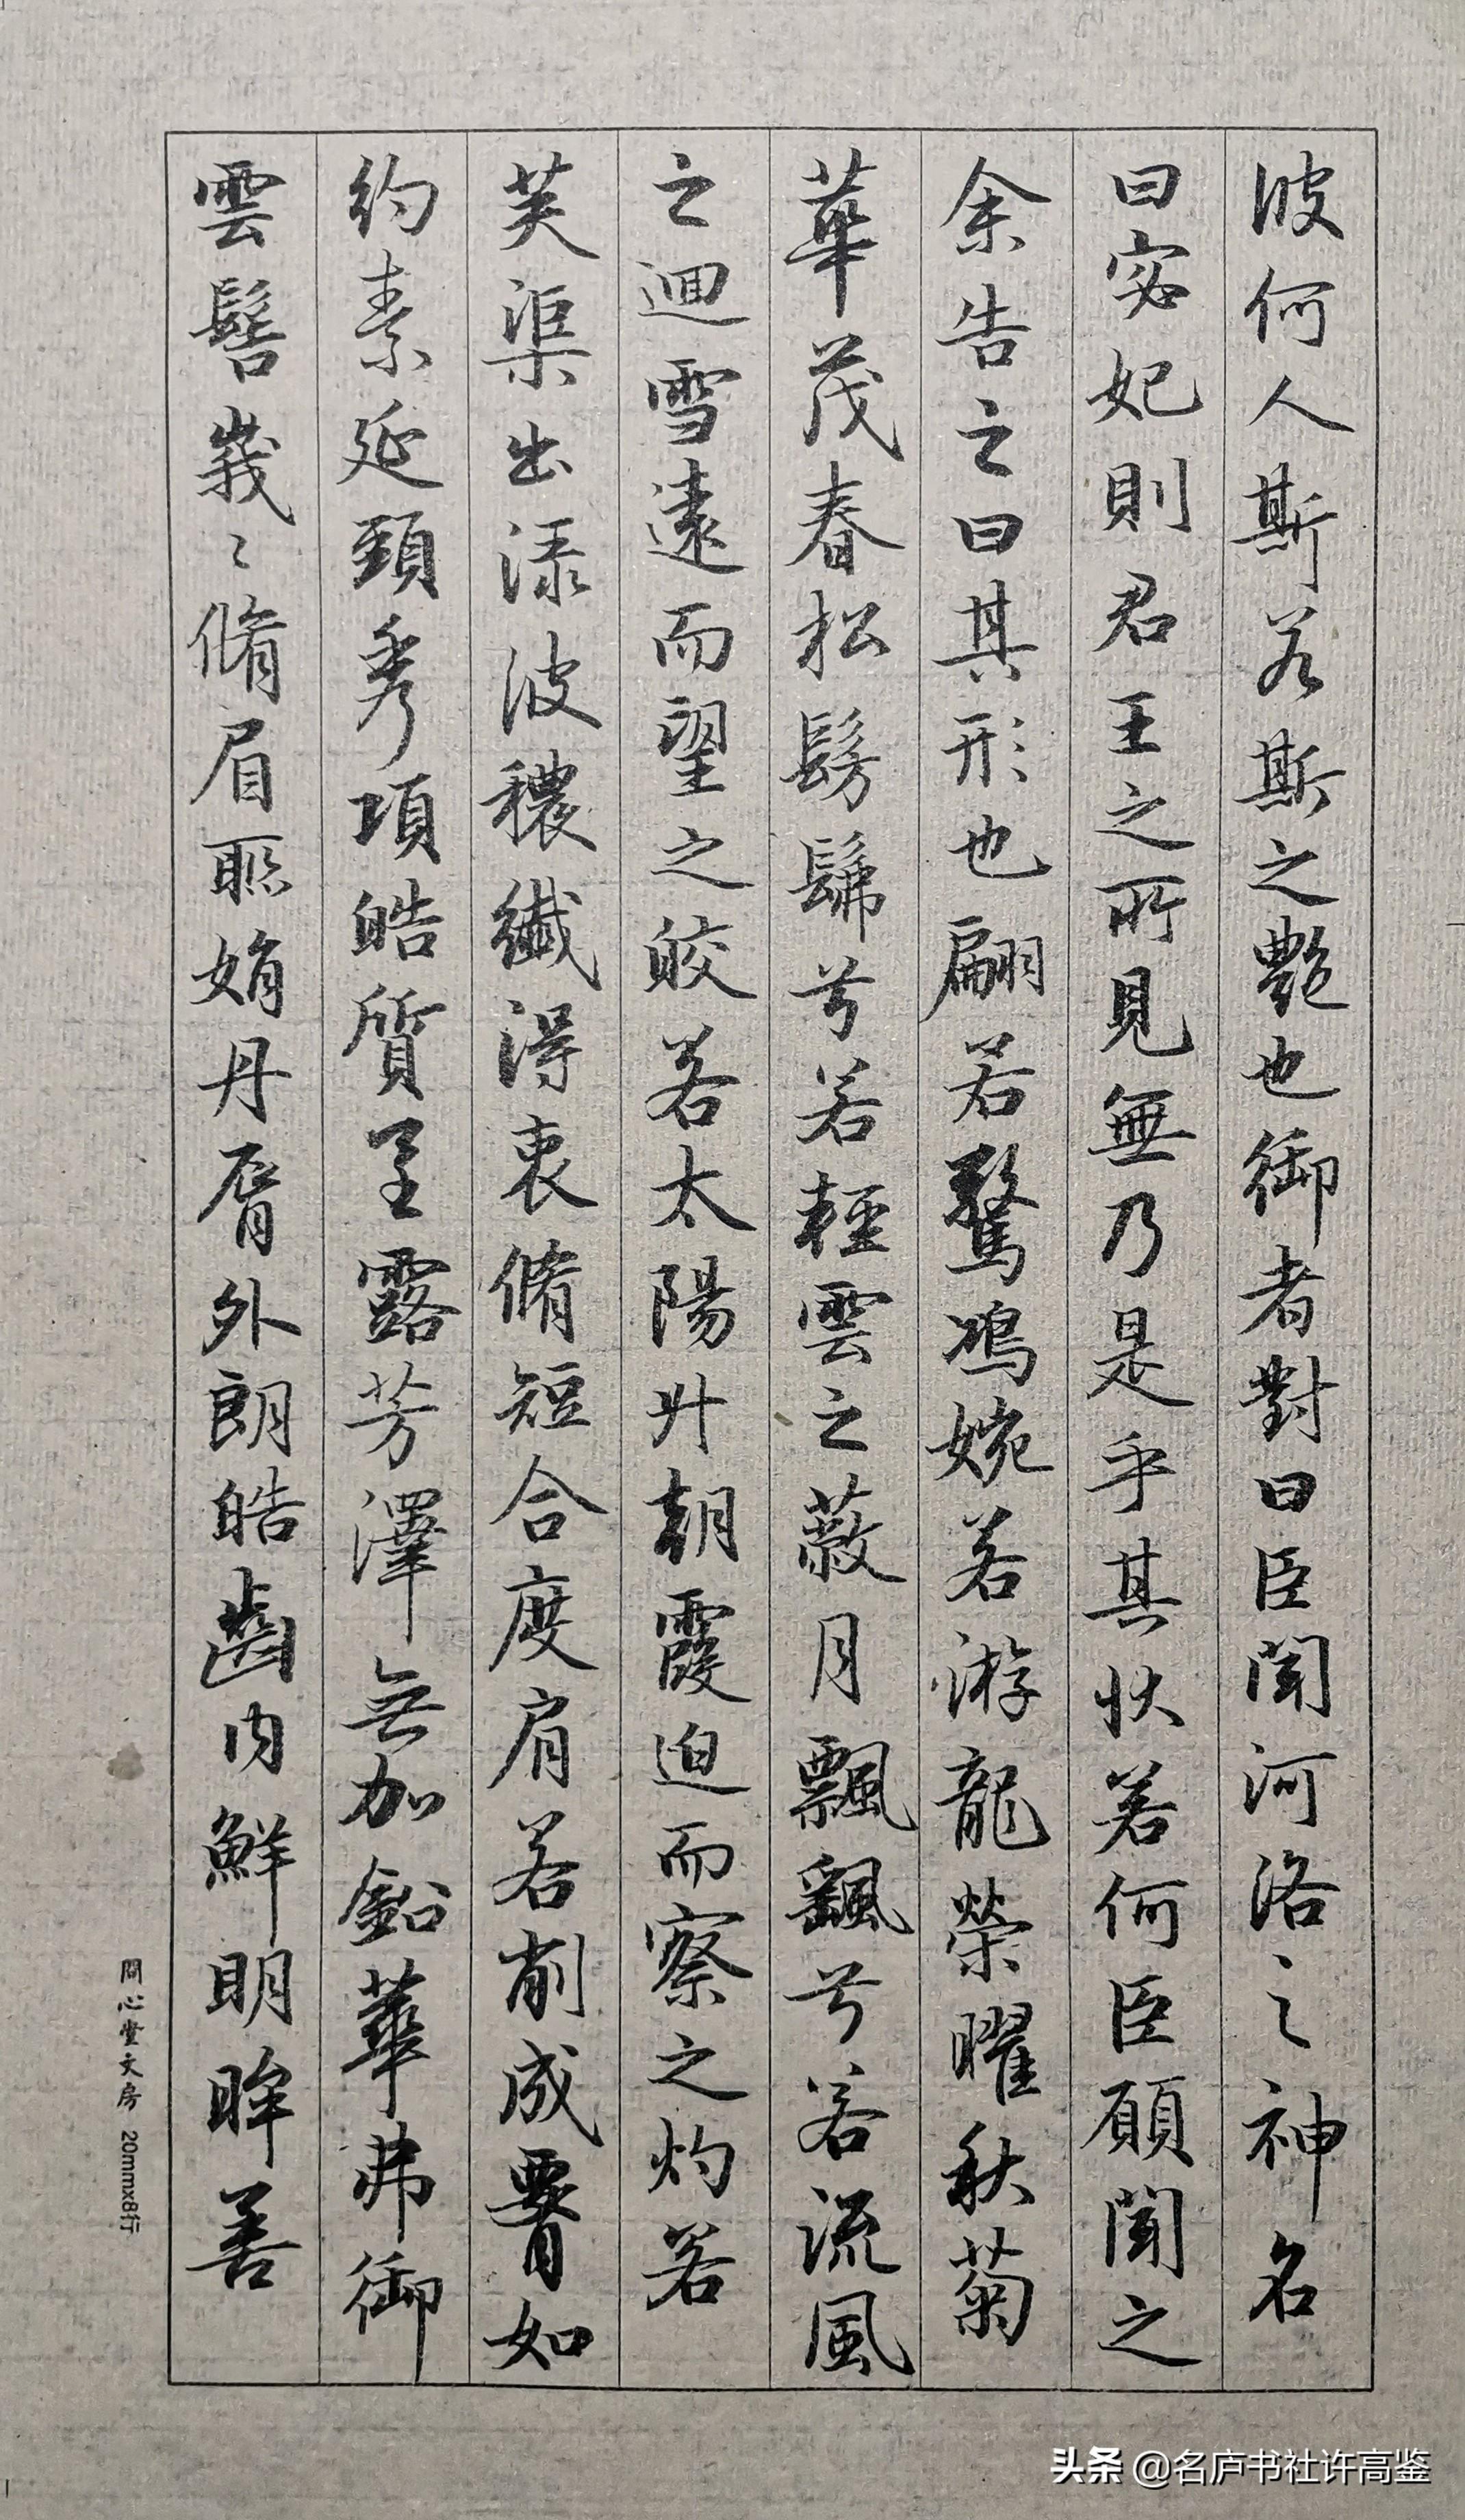 彼何人斯若斯之艷也御者對曰臣聞河洛之神名
曰宓妃則君王之所見無乃是乎其狀若何臣願聞之
余告之曰其形也翩若驚鴻婉若游龍榮曜秋菊
華茂春松髣髴兮若輕雲之蔽月飄颻兮若流風
之迴雪遠而望之皎若太陽升朝霞迫而察之灼若
芙渠出淥波穠纖得衷脩短合度肩若削成腰如
約素延頸秀項皓質呈露芳澤無加鉛華弗御
雲髻峩〻脩眉聯娟丹脣外朗皓齒內鮮明眸善
問心堂文房 20mmx8行
头条 @名庐书社许高鉴